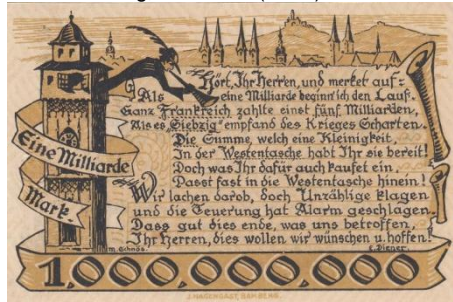 Hört, Ihr Herren, und merket auf:
Als eine Milliarde beginn' ich den Lauf.
Ganz Frankreich zahlte einst fünf Milliarden,
Als es Siebzig empfand des Krieges Scharten.
Die Summe, welch eine Kleinigkeit,
In der Westentasche habt Ihr sie bereit!
Doch was Ihr dafür auch kaufet ein,
Dasst fast in die Westentasche hinein!
Wir lachen darob, doch Unzählige klagen
und die Teuerung hat Alarm geschlagen.
Dass gut dies ende, was uns betroffen,
Ihr Herren, dies wollen wir wünschen u. hoffen!
Eine Milliarde
Mark
E. Diener.
1,000,000,000
J. NAGENGAST, BAMBERG.